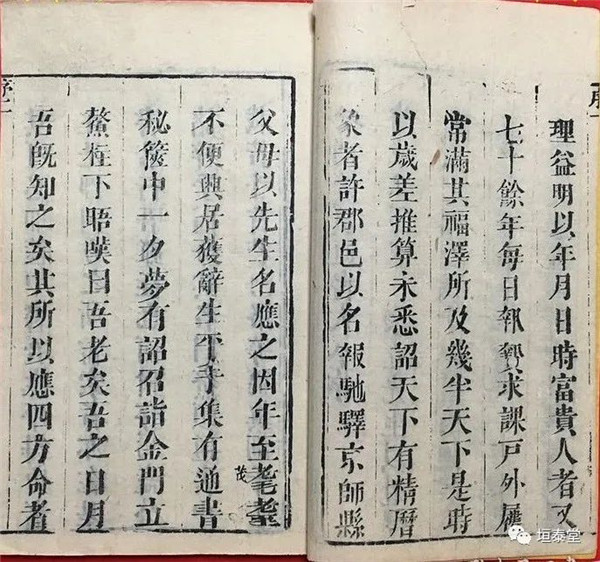 理益明以年月日時富貴人者又
七十餘年每日執贄求課戶外屨
常滿其福澤所及幾半天下是時
以歲差推算永悉詔天下有精曆
象者許郡邑以名報馳驛京師縣
父母以先生名應之因年至耄耋
茂
不便興居獲辭生平手集有通書
秘篋中一夕夢有詔召詣金門立
柱下晤嘆曰吾老矣吾之日月
吾既知之矣其所以應四方命者
垣泰堂